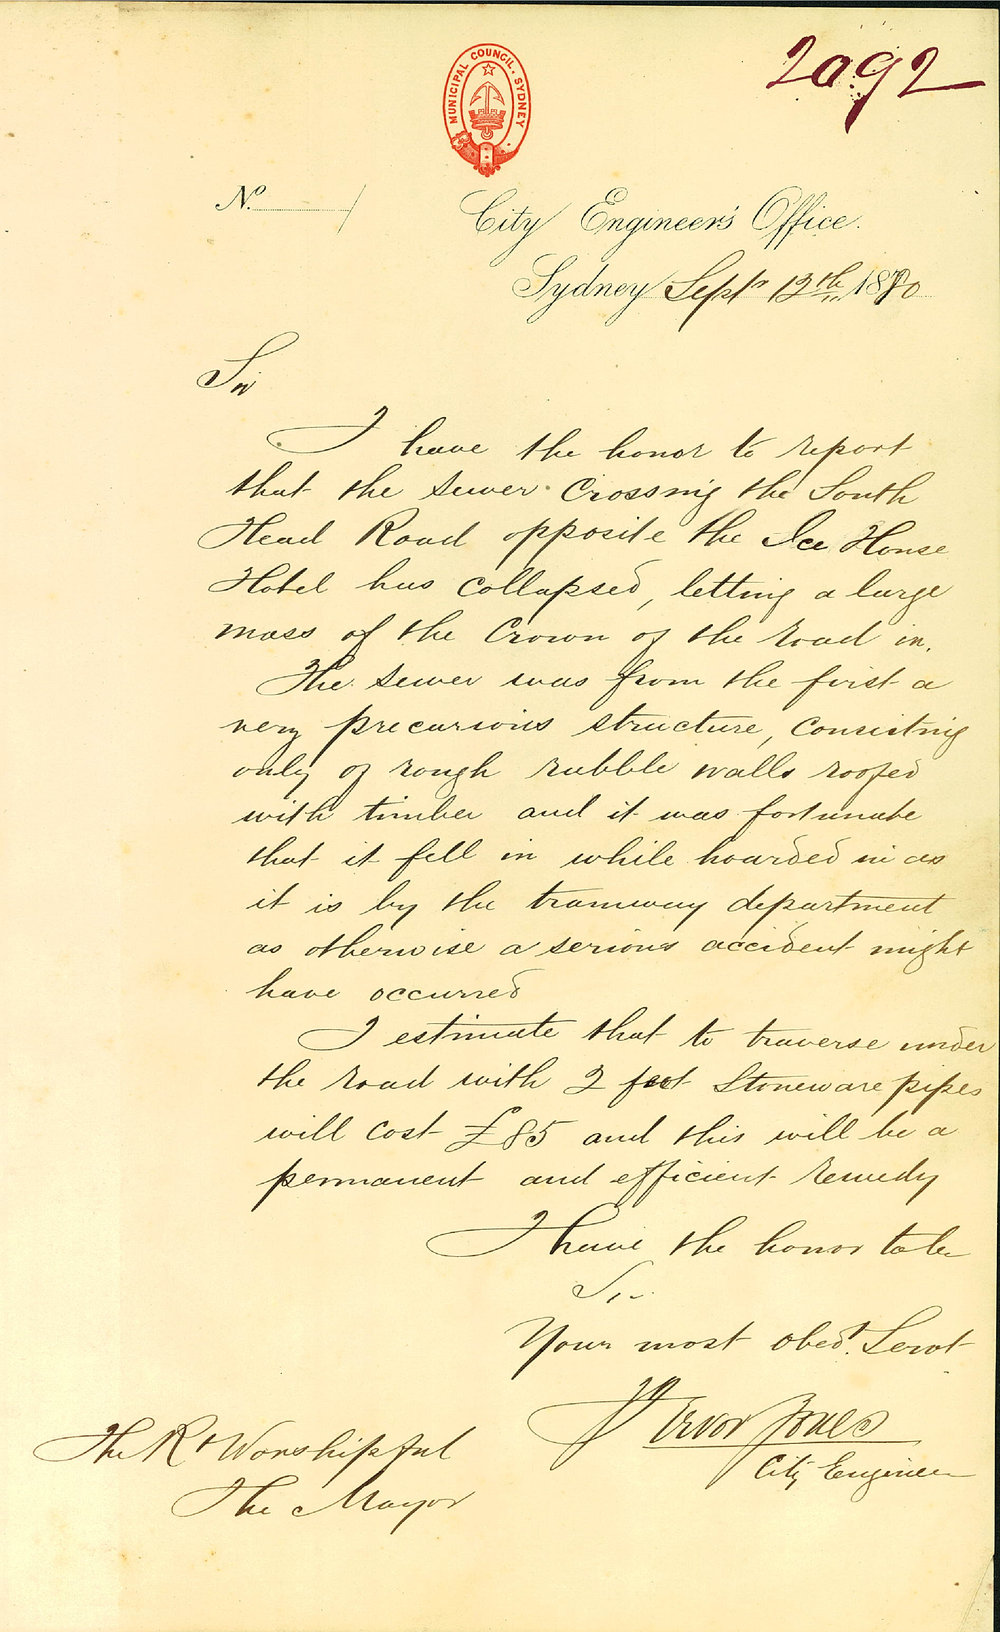 2092
MUNICIPAL COUNCIL. SYDNEY
No. /
City Engineer's Office.
Sydney Septr 13th 1880
Sir
I have the honor to report
that the sewer crossing the South
Head Road opposite the Ice House
Hotel has collapsed, letting a large
mass of the Crown of the road in.
The sewer was from the first a
very precarious structure, consisting
only of rough rubble walls roofed
with timber and it was fortunate
that it fell in while hoarded in as
it is by the tramway department
as otherwise a serious accident might
have occurred
I estimate that to traverse under
the road with 2 feet Stoneware pipes
will cost £85 and this will be a
permanent and efficient remedy
I have the honor to be
Sir
Your most obedt. Servt
Trevor Jones
City Engineer
The Rt Worshipful
The Mayor